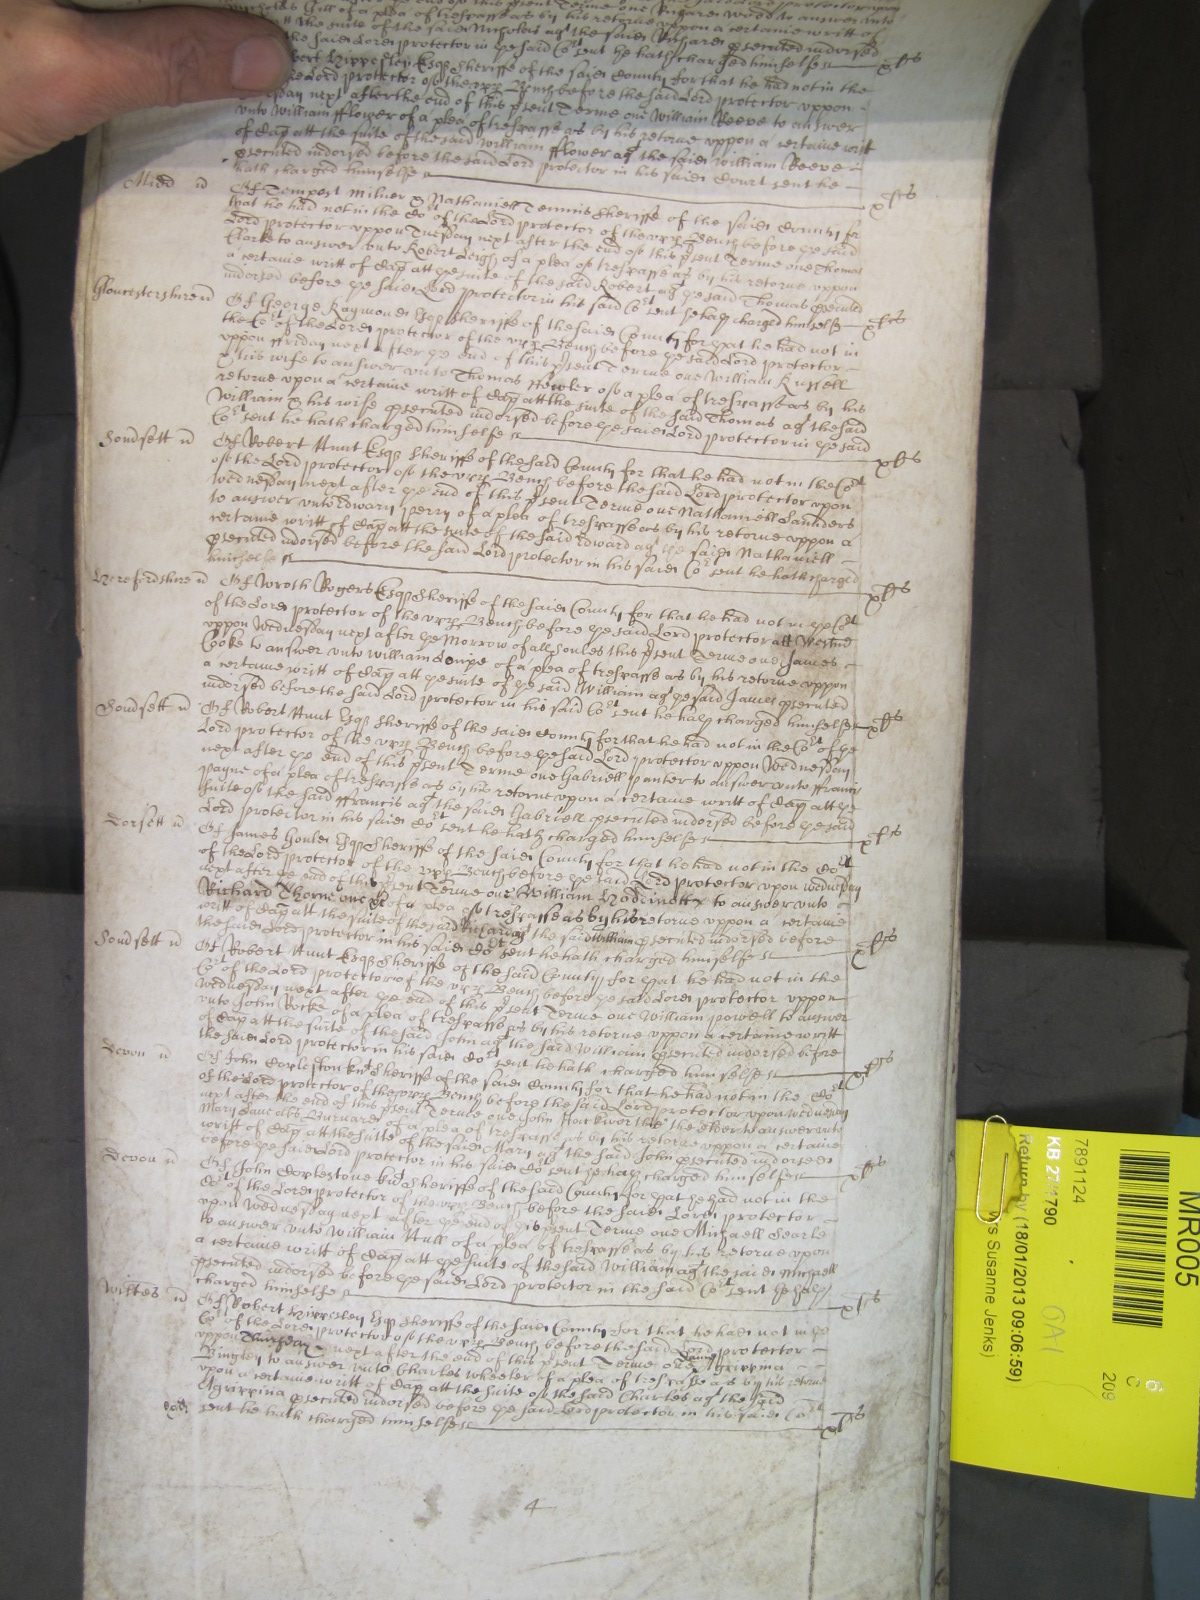 Nicholas Gill of a plea of trespasse as by his retorne vppon a certaine writt of
att the suite of the said Nicholas agt the said Richard psecuted indorsed
the said Lord protector in ye said Cort sent he hath charged himselfe xls
Hippesley Esqr Sheriffe of the said County for that he had not in the
the Lord protector of the vppr Bench before the said Lord protector vppon
next after the end of this psent Terme one William Reeve to answer
vnto William fflower of a plea of trespasse as by his retorne vppon a certaine writt
of Cap att the suite of the said William fflower agt the said William Reeve
psecuted indorsed before the said Lord protector in his said Court sent he
hath charged himselfe xls
Midd Of Tempest Milner & Nathaniell Temms Sheriffe of the said County for
that he had not in the Cort of the Lord protector of the vppr Bench before ye said
Lord protector vppon Tuesday next after the end of this psent Terme one Thomas
Clarke to answer vnto Robert Leigh of a plea of trespasse as by his retorne vppon
a certaine writt of Cap att ye suite of the said Robert agt ye said Thomas psecuted
indorsed before ye said Lord protector in his said Cort sent he hath charged himselfe xls
Gloucestershire Of George Raymond Esqr Sheriffe of the said County for yat he had not in
the Cort of the Lord protector of the vppr Bench before ye said Lord protector
vppon ffriday next after ye end of this psent Terme one William Russell
& his wife to answer vnto Thomas Hewler of a plea of trespasse as by his
retorne vpon a certaine writt of Cap att the suite of the said Thomas agt the said
William & his wife psecuted indorsed before ye said Lord protector in ye said
Cort sent he hath charged himselfe xls
Somsett Of Robert Hunt Esqr Sheriffe of the said County for that he had not in the Cort
of the Lord protector of the vppr Bench before the said Lord protector vpon
Wednesday next after ye end of this psent Terme one Nathaniell Saunders
to answer vnto Edward perry of a plea of trespasse as by his retorne vppon a
certaine writt of Cap att the suite of the said Edward agt ye said Nathaniell
psecuted indorsed before the said Lord protector in his said Cort sent he hath charged
himselfe xls
Herefordshire Of Wroth Rogers Esqr Sheriffe of the said County for that he had not in ye Cort
of the Lord protector of the vppr Bench before ye said Lord protector att Westmr
vppon Wednesday next after ye Morrow of all Soules this psent Terme one James
Cooke to answer vnto William Loupe of a plea of trespasse as by his retorne vppon
a certaine writt of Cap att ye suite of ye said William agt ye said James psecuted
indorsed before the said Lord protector in his said Cort sent he hath charged himselfe xls
Somsett Of Robert Hunt Esqr Sheriffe of the said County for that he had not in the Cort of ye
Lord protector of the vppr Bench before ye said Lord protector vppon Wednesday
next after ye end of this psent Terme one Gabriell panter to answer vnto ffrancis
Payne of a plea of trespasse as by his retorne vpon a certaine writt of Cap att ye
suite of the said ffrancis agt the said Gabriell psecuted indorsed before ye said
Lord protector in his said Cort sent he hath charged himselfe xls
Dorsett Of James Gould Esqr Sheriffe of the said County for that he had not in the Cort
of the Lord protector of the vppr Bench before ye said Lord protector vpon Wednesday
next after ye end of this psent Terme one William to answer vnto
Richard Thorne of a plea of trespasse as by his retorne vppon a certaine
writt of Cap att the suite of the said Richard agt the said William psecuted indorsed before
the said Lord protector in his said Cort sent he hath charged himselfe xls
Somsett Of Robert Hunt Esqr Sheriffe of the said County for yat he had not in the
Cort of the Lord protector of the vppr Bench before ye said Lord protector vppon
Wednesday next after ye end of this psent Terme one William powell to answer
vnto John Rocke of a plea of trespasse as by his retorne vppon a certaine writt
of Cap att the suite of the said John agt the said William psecuted indorsed before
the said Lord protector in his said Cort sent he hath charged himselfe xls
Devon Of John Coplestone knt Sheriffe of the said County for that he had not in the Cort
of the Lord protector of the vppr Bench before the said Lord protector vpon Wednesday
next after the end of this psent Terme one John Hackworthy the elder to answer vnto
Mary Saunders of a plea of trespasse as by his retorne vppon a certaine
writt of Cap att the suite of the said Mary agt the said John psecuted indorsed
before ye said Lord protector in his said Cort sent he hath charged himselfe xls
Devon Of John Coplestone knt Sheriffe of the said County for yat he had not in the
Cort of the Lord protector of the vppr Bench before the said Lord protector
vpon Wednesday next after ye end of this psent Terme one Michaell Searle
to answer vnto William Hull of a plea of trespasse as by his retorne vpon
a certaine writt of Cap att ye suite of the said William agt the said Michaell
psecuted indorsed before ye said Lord protector in the said Cort sent he hath
charged himselfe xls
Wiltes Of Robert Hippesley Esqr Sheriffe of the said County for that he had not in ye
Cort of the Lord protector of the vppr Bench before the said Lord protector
vppon Thursday next after the end of this psent Terme one Agrippina
Bingley to answer vnto Charles Wheeler of a plea of trespasse as by his retorne
vpon a certaine writt of Cap att the suite of the said Charles agt the said
Agrippina psecuted indorsed before ye said Lord protector in his said Cort
sent he hath charged himselfe xls
4
MR005
7891124
KB 27/1790
Return by (18/01/2013 09:06:59)
Susanne Jenks)
OA1
6
C
209